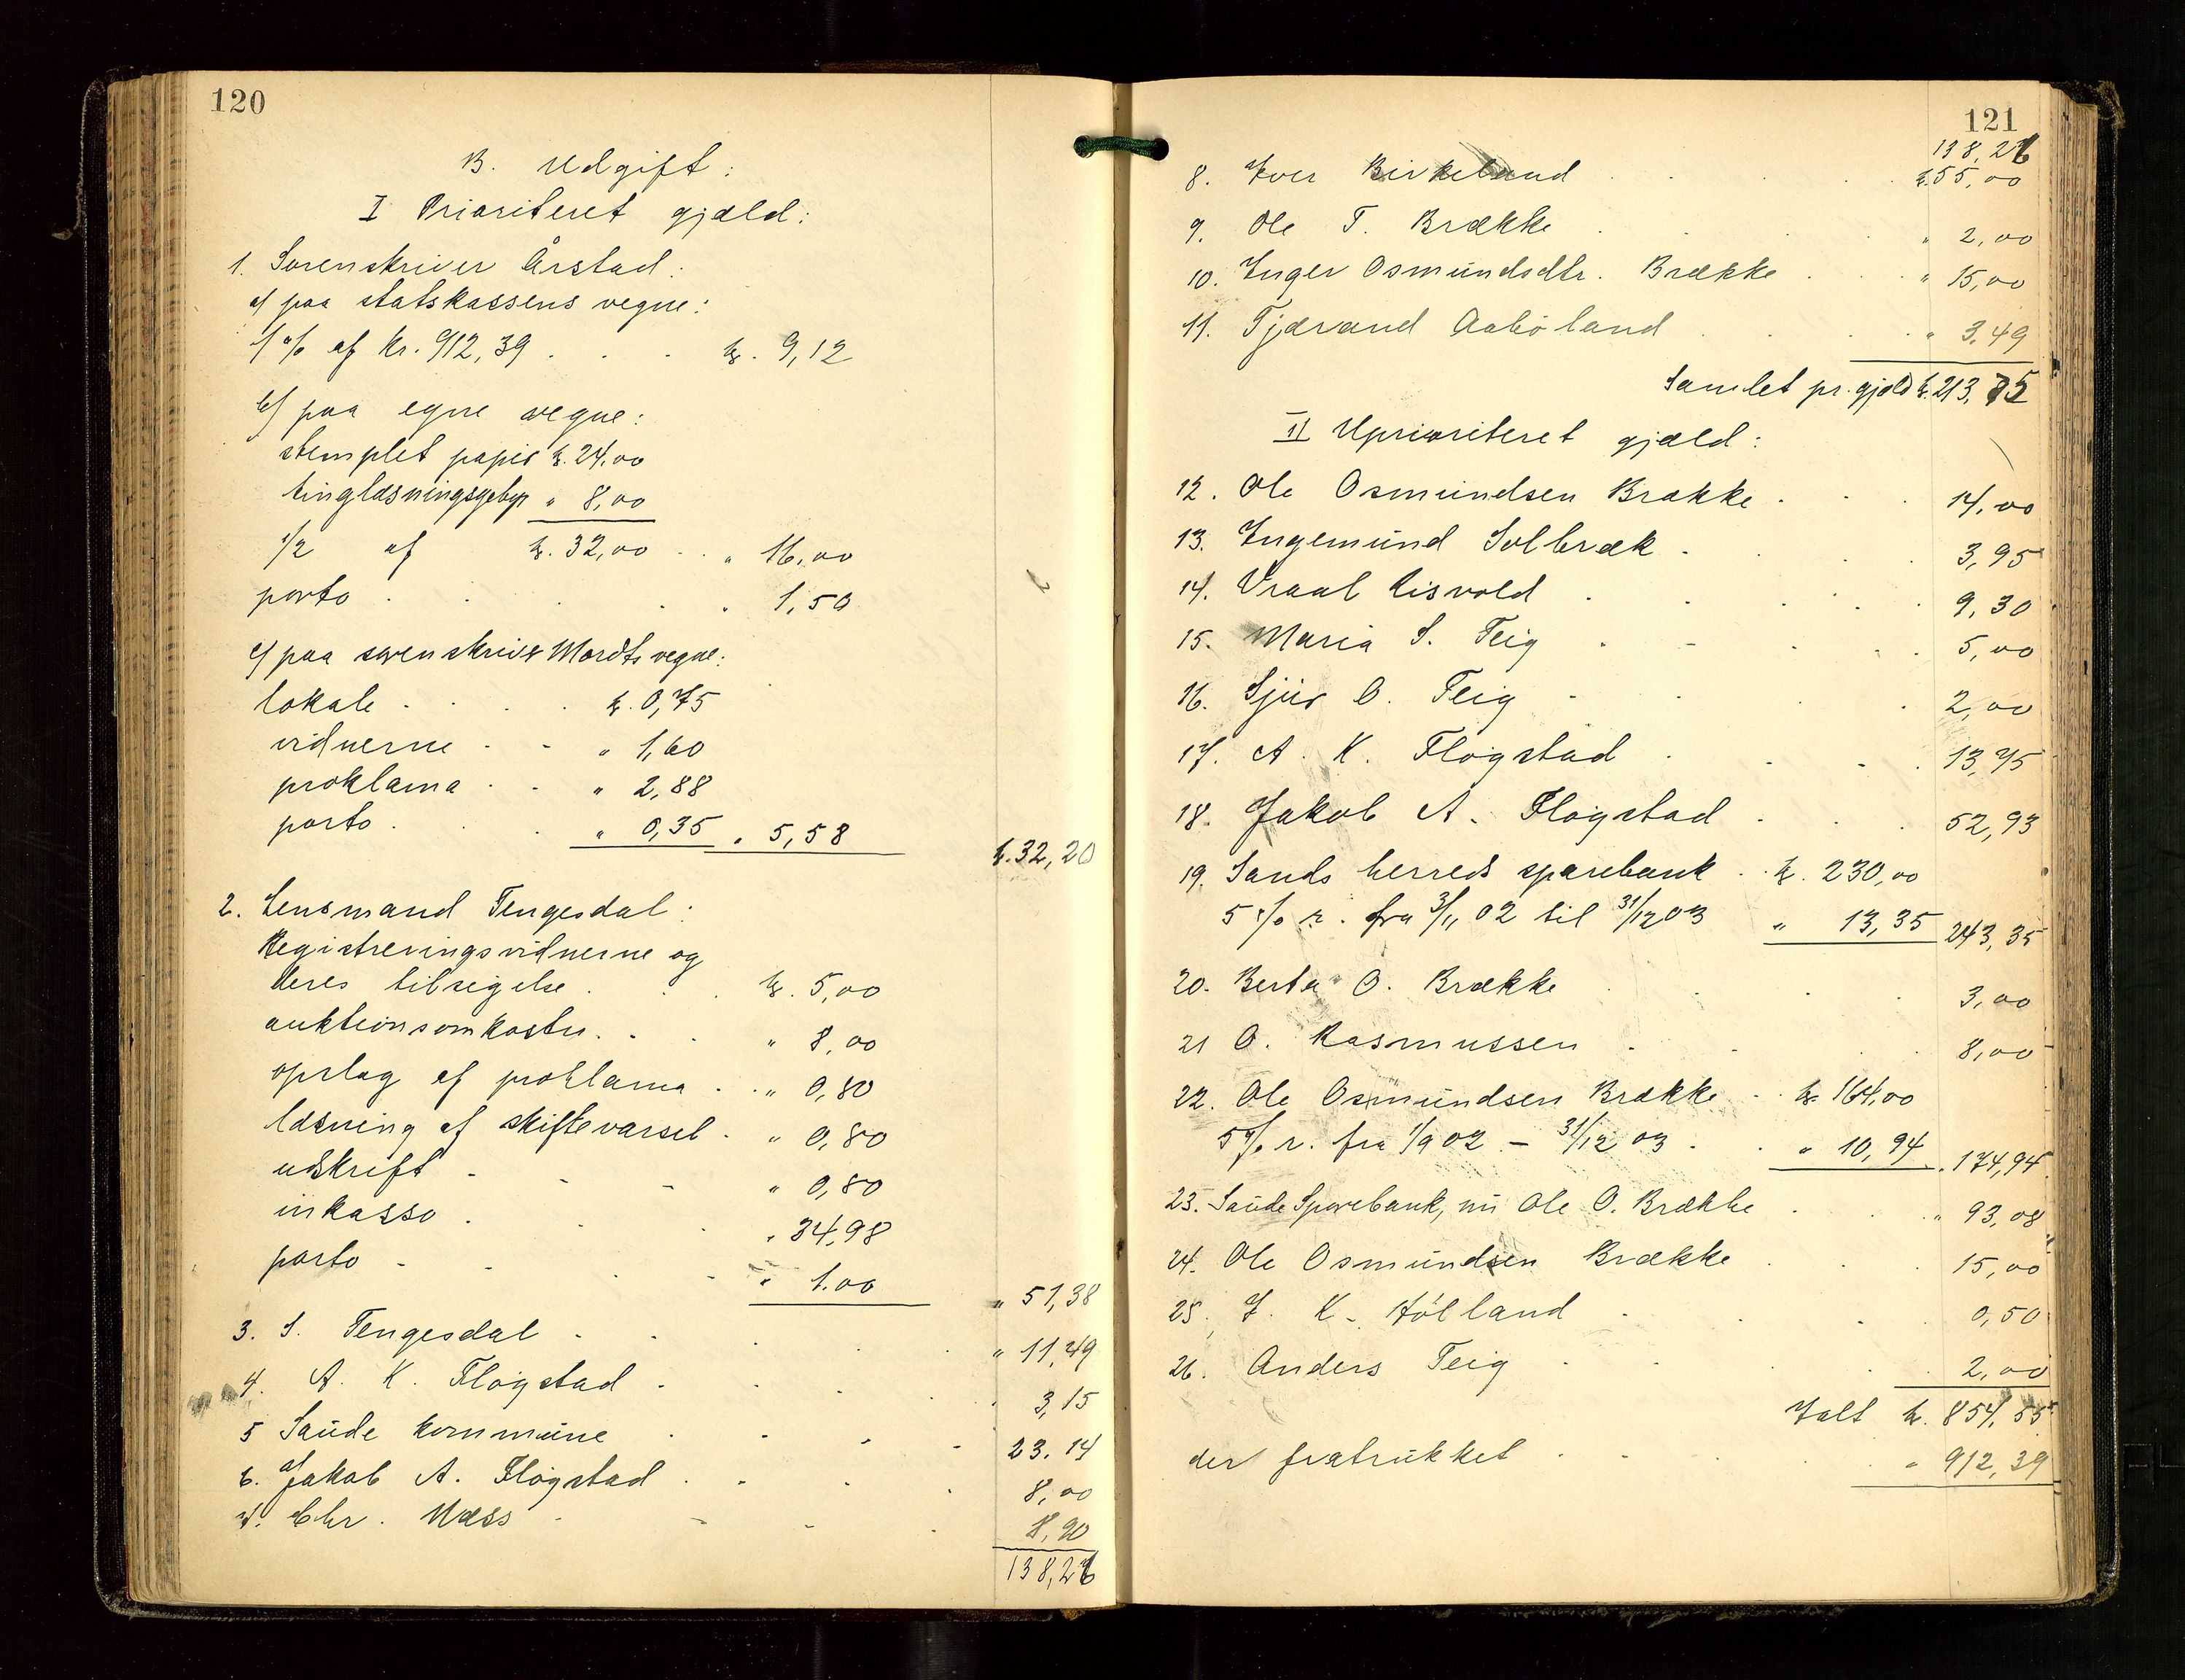 120
B. Udgift:
I Prioriteret gjæld:
1. Sorenskriver Årstad:
a) paa statskassens vegne:
1 % af kr. 912,39 . . . kr. 9,12
b) paa egne vegne:
stemplet papir kr. 24,00
tinglæsningsgebyr " 8,00
1/2 af kr. 32,00 . . " 16,00
porto . . . . " 1,50
c) paa sorenskriver Mordts vegne:
lokale . . . . kr. 0,75
vidnerne . . " 1,60
proklama . . " 2,88
porto . . . " 0,35 " 5,58
kr. 32,20
2. Lensmand Tengesdal:
Registreringsvidnerne og
deres tilsigelse . . . kr. 5,00
auktionsomkostn. . . " 8,00
opslag af proklama . . " 0,80
læsning af skiftevarsel . " 0,80
udskrift . . . " 0,80
inkasso . . " 34,98
porto . . . . " 1.00
" 51,38
3. S. Tengesdal . . . . . " 11,49
4. A. K. Fløgstad . . . . . 3,15
5 Saude kommune . . . . 23.14
6. Jakob A. Fløgstad . . . . 8,00
7. Chr. Næss . . . . 8,90
138,26
121
138,26
8. Iver Birkeland . . . kr. 55,00
9. Ole T. Brække . . . " 2,00
10. Inger Osmundsdtr. Brække . . " 15,00
11. Tjærand Aabøland . . . " 3,49
Samlet pr. gjæld kr. 213,75
II Uprioriteret gjæld:
12. Ole Osmundsen Brække . . . 14,00
13. Ingemund Solbræk . . . 3,95
14. Vraal Risvold . . . . . 9,30
15. Maria S. Teig . . . . . 5,00
16. Sjur O. Teig . . . . 2,00
17. A. K. Fløgstad . . . . 13,75
18. Jakob A. Fløgstad . . . 52,93
19. Sands herreds sparebank . . kr. 230,00
5 % r. fra 3/11 02 til 31/12 03 " 13,35 243,35
20. Berta O. Brække . . . 3,00
21 O. Rasmussen . . . . 8,00
22. Ole Osmundsen Brække . . kr. 164,00
5 % r. fra 1/9 02 - 31/12 03 . . " 10,94 " 174,94
23. Saude Sparebank, nu Ole O. Brække . . " 93,08
24. Ole Osmundsen Brække . . . 15,00
25. J. K. Hølland . . . 0,50
26. Anders Teig . . . . 2,00
Ialt kr. 854,55
der fratrukket . . . " 912,39